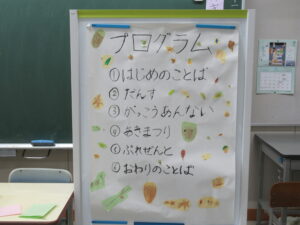 プログラム
①はじめのことば
②だんす
③がっこうあんない
④あきまつり
⑤ぷれぜんと
⑥おわりのことば